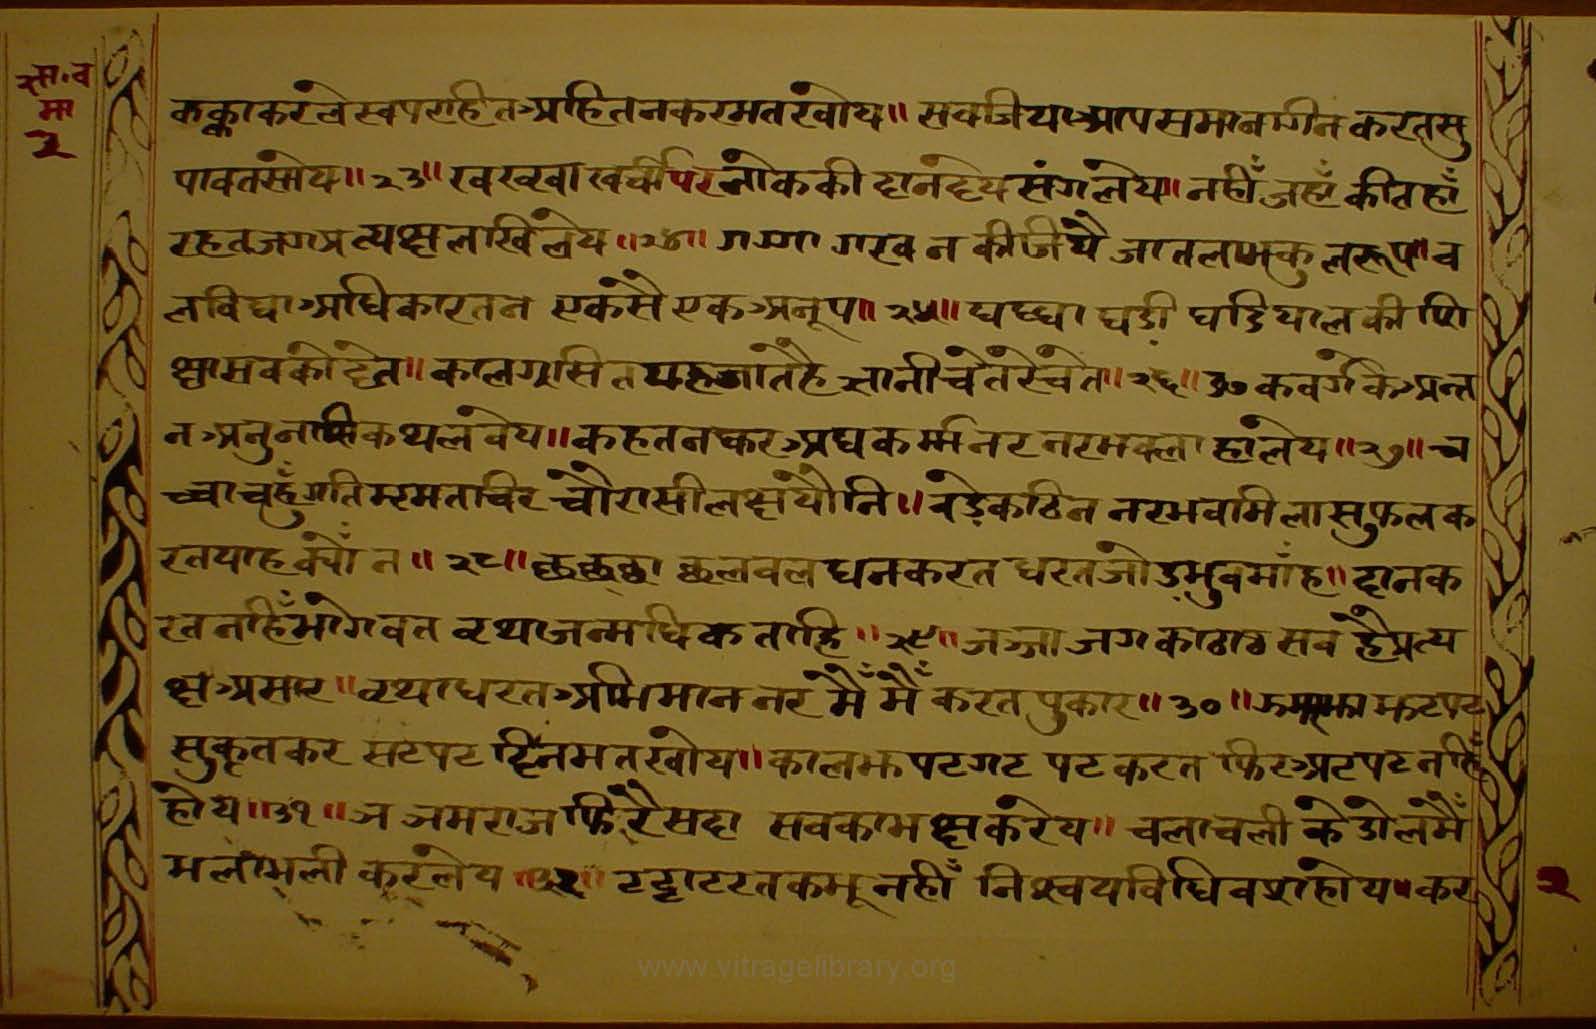 कक्काकरलेस्वपरहितअहितनकरमतखोय॥ सवजियआपसमानगिनकरतसु
पावतसोय॥२३॥ खखखाखर्चीपरलोककी दानदेयसंगलेय॥ नहीँजहाँ कीतहाँ
रहतजगप्रत्यक्षलखिलेय॥२४॥ गग्गा गरवनकीजिये जातलाभकुलरूप॥व
लविद्याअधिकारतन एकसैएकअनूप॥२५॥ घघ्घा घडी़ घडियालकीशि
क्षासवकोदेत॥ कालग्रसितयहजातहै ज्ञानीचेतरेचेत॥२६॥ ङ कवर्गकेअन्त
नअनुनासिकथलवेय॥ कहतनकरअघकर्म्मनरनरभवलाहालेय॥२७॥ च
च्चाचहुँगतिभरमताफिर चौरासीलक्षयौनि॥ वड़ेकठिन नरभवमिलासुफलक
रतयाहक्योँन॥२८॥ छछ्छा छलवलधनकरत धरतजोड़भुवमाँह॥ दानक
रतनहिँभोगवत वृथाजन्मधिकताहि॥२९॥ जज्जाजगकाठाठसव हैप्रत्य
क्षअसार॥ वृथाधरतअभिमाननर मैँमैँ करतपुकार॥३०॥ झझ्झाझटपट
सुकृतकर सटपट दिनमतखोय॥ कालझपटगटपटकरत फिरअटपटनहिँ
होय॥३१॥ ञ ञमराजफिरैसदा सवकाभक्षकरेय॥ चलाचली केडोलमैँ
भलाभली करलेय॥३२॥ टट्टाटरतकभूनहीँ निश्चयविधिवशहोय॥कर
२
मा
२
www.vitragelibrary.org